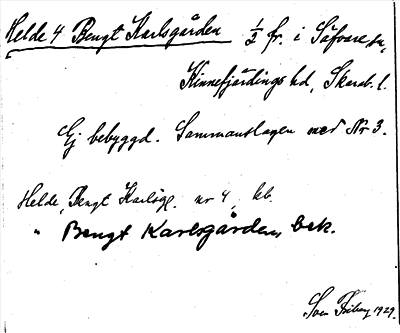 Helde 4 Bengt Karlsgården 1/2 fr. i Säfvare sn,
Kinnefjärdings hd, Skarab. l.
Ej bebyggd. Sammanslagen med Nr 3.
Helde, Bengt Karlsg. nr 4, kb.
" Bengt Karlsgården, bek.
Sven 1929.